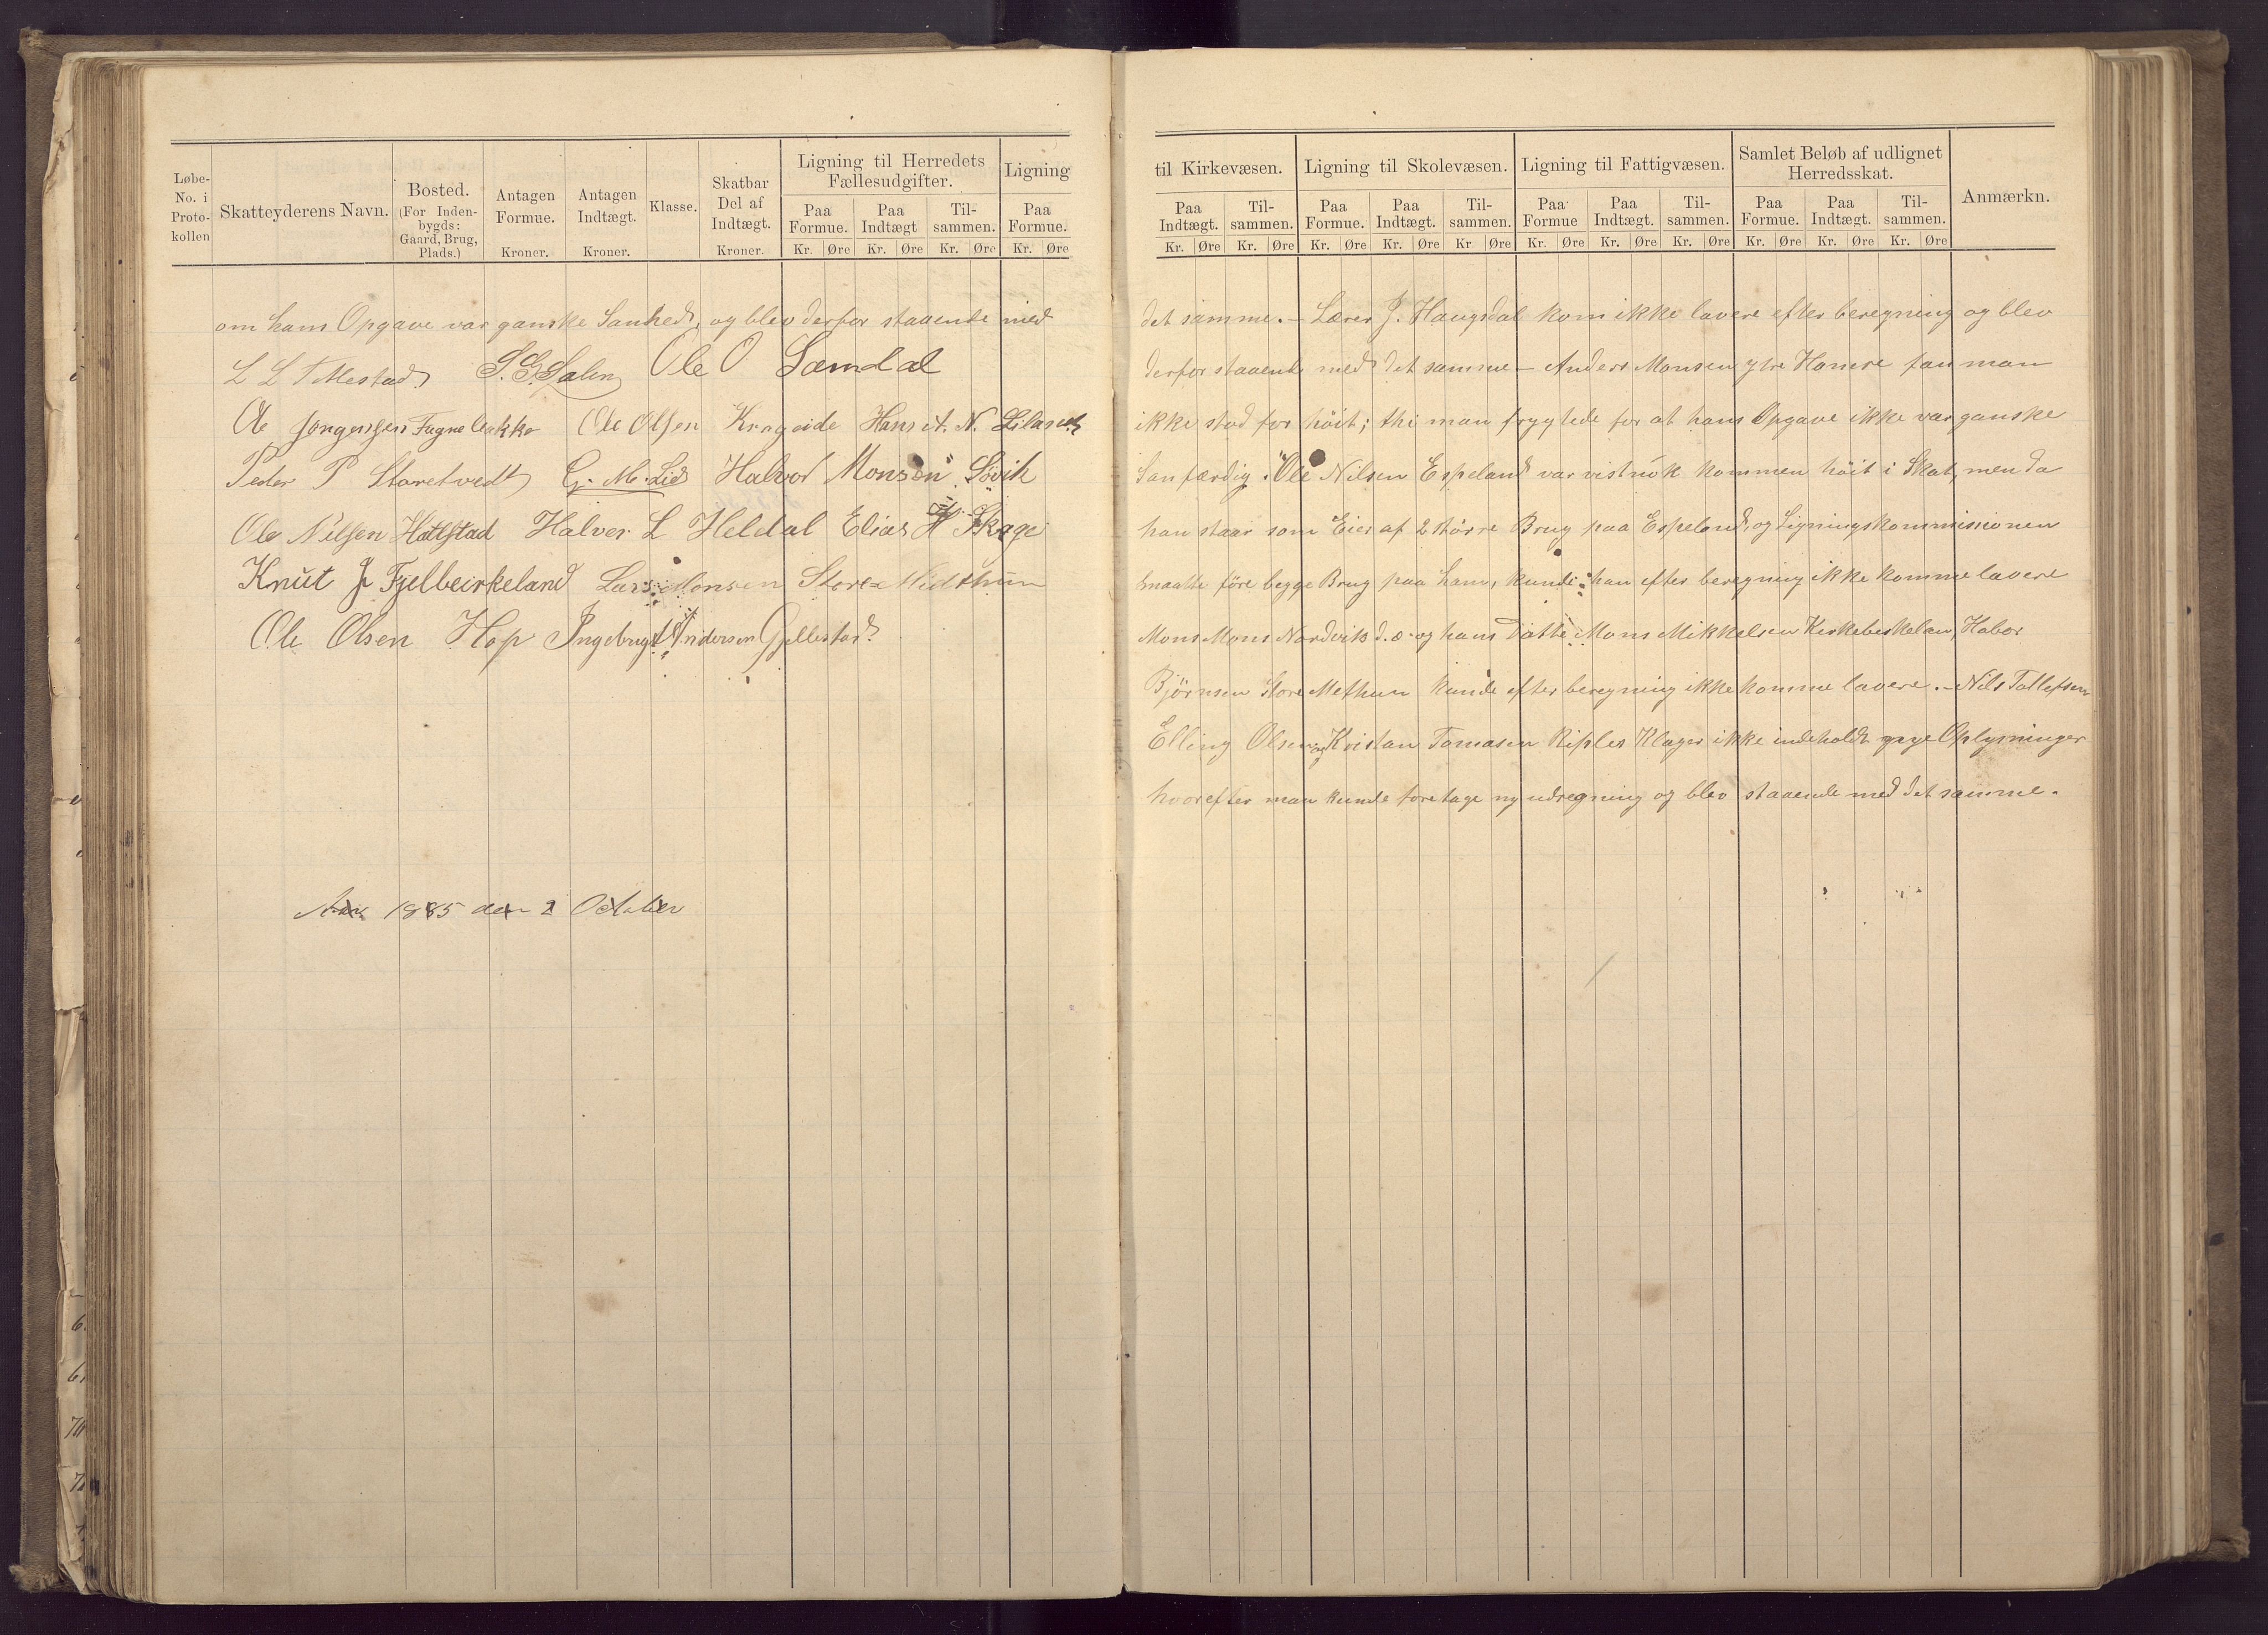 Løbe-No. i Proto-kollen
Skatteyderens Navn.
Bosted.
(For Inden-bygds: Gaard, Brug, Plads.)
Antagen Formue.
Kroner.
Antagen Indtægt.
Kroner.
Klasse.
Skatbar Del af Indtægt.
Kroner.
Ligning til Herredets Fællesudgifter.
Paa Formue. Paa Indtægt Til-sammen.
Kr. Øre Kr. Øre Kr. Øre
Ligning
Paa Formue.
Kr. Øre
om hans Opgave var ganske Sanhed, og blev derfor staaende med
L L Mestad. Ole O Samdal
Ole Jørgensen Fagnebakke Ole Olsen Krageide Hans N.
Peder P Storetvedt G. M. Lid Halvor Monsen Søvik
Ole Nilsen Hattstad Halver L Heldal Elias H Skage
Knut J Fjelbeirkeland Lars Monsen Store Midthun
Ole Olsen Hop Ingebrigt Andersen Gjellestad
1885 den 2 October
til Kirkevæsen.
Paa Indtægt. Til-sammen.
Kr. Øre Kr. Øre
Ligning til Skolevæsen.
Paa Formue. Paa Indtægt. Til-sammen.
Kr. Øre Kr. Øre Kr Øre
Ligning til Fattigvæsen.
Paa Formue Paa Indtægt. Til-sammen.
Kr. Øre Kr. Øre Kr. Øre
Samlet Beløb af udlignet Herredsskat.
Paa Formue. Paa Indtægt. Til-sammen.
Kr. Øre Kr. Øre Kr. Øre
Anmærkn.
det samme. – Lærer J. Haugsdal kom ikke lavere efter beregning og blev
derfor staaende med det samme – Anders Monsen ytre Hamre fan man
ikke stod for höit; thi man frygtede for at hans Opgave ikke var ganske
Sanfærdig. Ole Nilsen Espeland var vistnok kommen höit i Skat, men da
han staar som Eier af 2 större Brug paa Espeland, og Ligningskommissionen
maatte före begge Brug paa ham, kunde han efter beregning ikke komme lavere
Mons Mons Nordvik d. æ. og hans Mons Mikkelsen Kirkebirkelan, Habor
Björnsen Store Methun kunde efter beregning ikke komme lavere. – Nils Tollefsen
Elling Olsen og Kristan Tomasen Riples Klager ikke indeholdt nye Oplysninger
hvorefter man kunde foretage ny udregning og blev staaende med det samme.